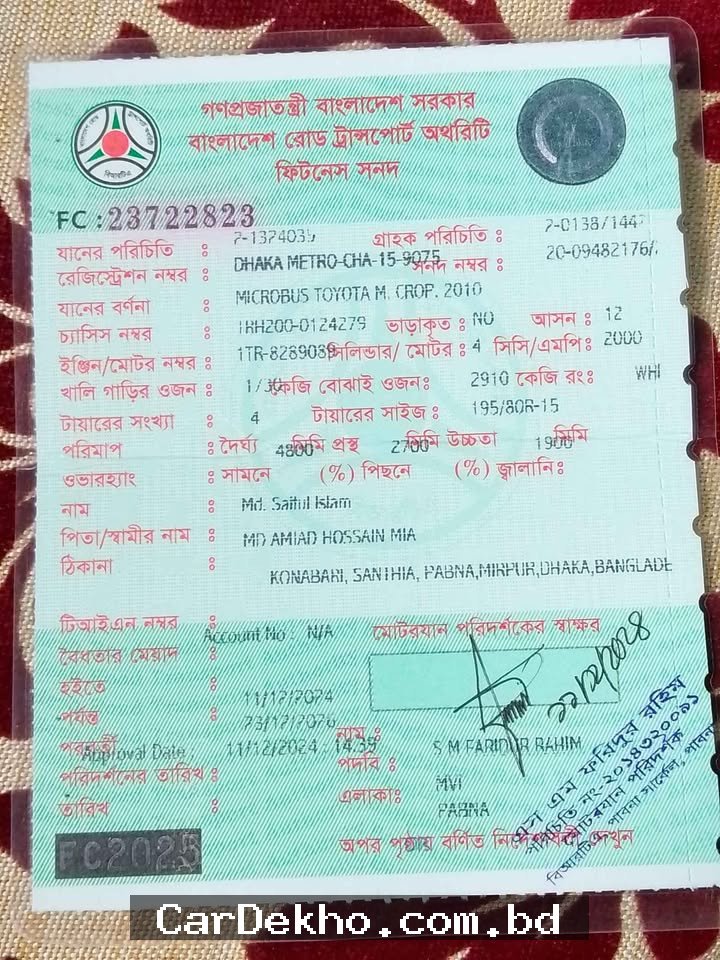 গণপ্রজাতন্ত্রী বাংলাদেশ সরকার
বাংলাদেশ রোড ট্রান্সপোর্ট অথরিটি
ফিটনেস সনদ
FC : 23722823
যানের পরিচিতি : 2-1324035 গ্রাহক পরিচিতি : 2-0138/144
রেজিস্ট্রেশন নম্বর : DHAKA METRO-CHA-15-9075 সনদ নম্বর : 20-09482176/
যানের বর্ণনা : MICROBUS TOYOTA M. CROP. 2010
চ্যাসিস নম্বর : TRH200-0124279 ভাড়াকৃত : NO আসন : 12
ইঞ্জিন/মোটর নম্বর : 1TR-8289089 সিলিন্ডার/ মোটর : 4 সিসি/এমপি: 2000
খালি গাড়ির ওজন : কেজি বোঝাই ওজন: 2910 কেজি রং: WHI
টায়ারের সংখ্যা : 4 টায়ারের সাইজ : 195/80R-15
পরিমাপ : দৈর্ঘ্য 4800 মিমি প্রস্থ 2700 মিমি উচ্চতা 1900 মিমি
ওভারহ্যাং : সামনে (%) পিছনে (%) জ্বালানি:
নাম : Md. Saiful Islam
পিতা/স্বামীর নাম : MD AMJAD HOSSAIN MIA
ঠিকানা : KONABARI, SANTHIA, PABNA,MIRPUR,DHAKA,BANGLADE
টিআইএন নম্বর : Account No : N/A মোটরযান পরিদর্শকের স্বাক্ষর
বৈধতার মেয়াদ :
হইতে : 11/12/2024
২২/১২/২০২৪
পর্যন্ত : 23/12/2026
পরবর্তী Approval Date : 11/12/2024 : 14:39 নাম : S M FARIDUR RAHIM
পরিদর্শনের তারিখ : পদবি : MVI
তারিখ : এলাকা: PABNA
FC2025
অপর পৃষ্ঠায় বর্ণিত নির্দেশাবলী দেখুন
এস এম ফরিদুর রহিম
পরিচিতি নং-২০১৪৩২০০৯১
মোটরযান পরিদর্শক
বিআরটিএ, পাবনা সার্কেল, পাবনা
CarDekho.com.bd